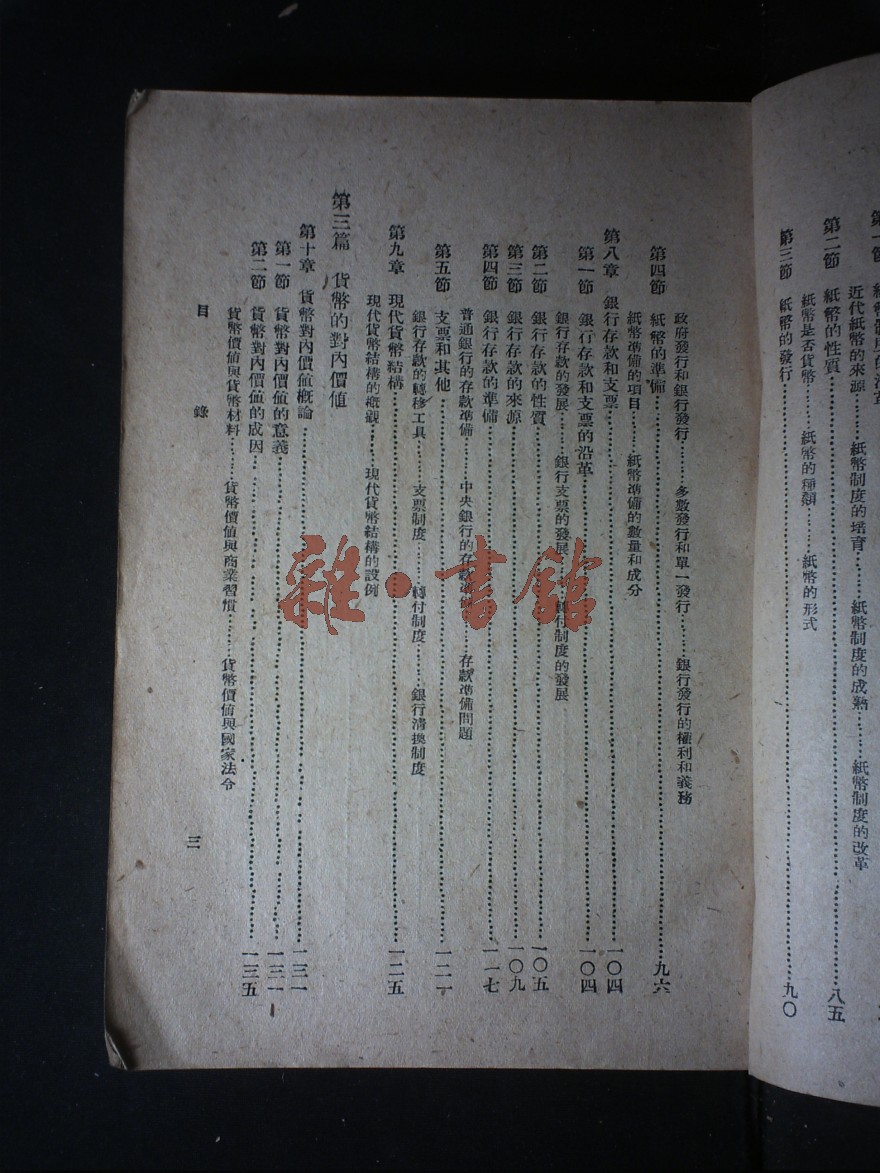 第二節 紙幣的性質……八五
近代紙幣的來源……紙幣制度的培育……紙幣制度的成熟……紙幣制度的改革
紙幣是否貨幣……紙幣的種類……紙幣的形式
第三節 紙幣的發行……九〇
政府發行和銀行發行……多數發行和單一發行……銀行發行的權利和義務
第四節 紙幣的準備……九六
紙幣準備的項目……紙幣準備的數量和成分
第八章 銀行存款和支票……一〇四
第一節 銀行存款和支票的沿革……一〇四
銀行存款的發展……銀行支票的發展……轉付制度的發展
第二節 銀行存款的性質……一〇五
第三節 銀行存款的來源……一〇九
第四節 銀行存款的準備……一一七
普通銀行的存款準備……中央銀行的存款準備……存款準備問題
第五節 支票和其他……一二一
銀行存款的轉移工具……支票制度……轉付制度……銀行清換制度
第九章 現代貨幣結構……一二五
現代貨幣結構的概觀……現代貨幣結構的設例
第三篇 貨幣的對內價值
第十章 貨幣對內價值概論……一三一
第一節 貨幣對內價值的意義……一三一
第二節 貨幣對內價值的成因……一三五
貨幣價值與貨幣材料……貨幣價值與商業習慣……貨幣價值與國家法令
目錄
三
雜·書館